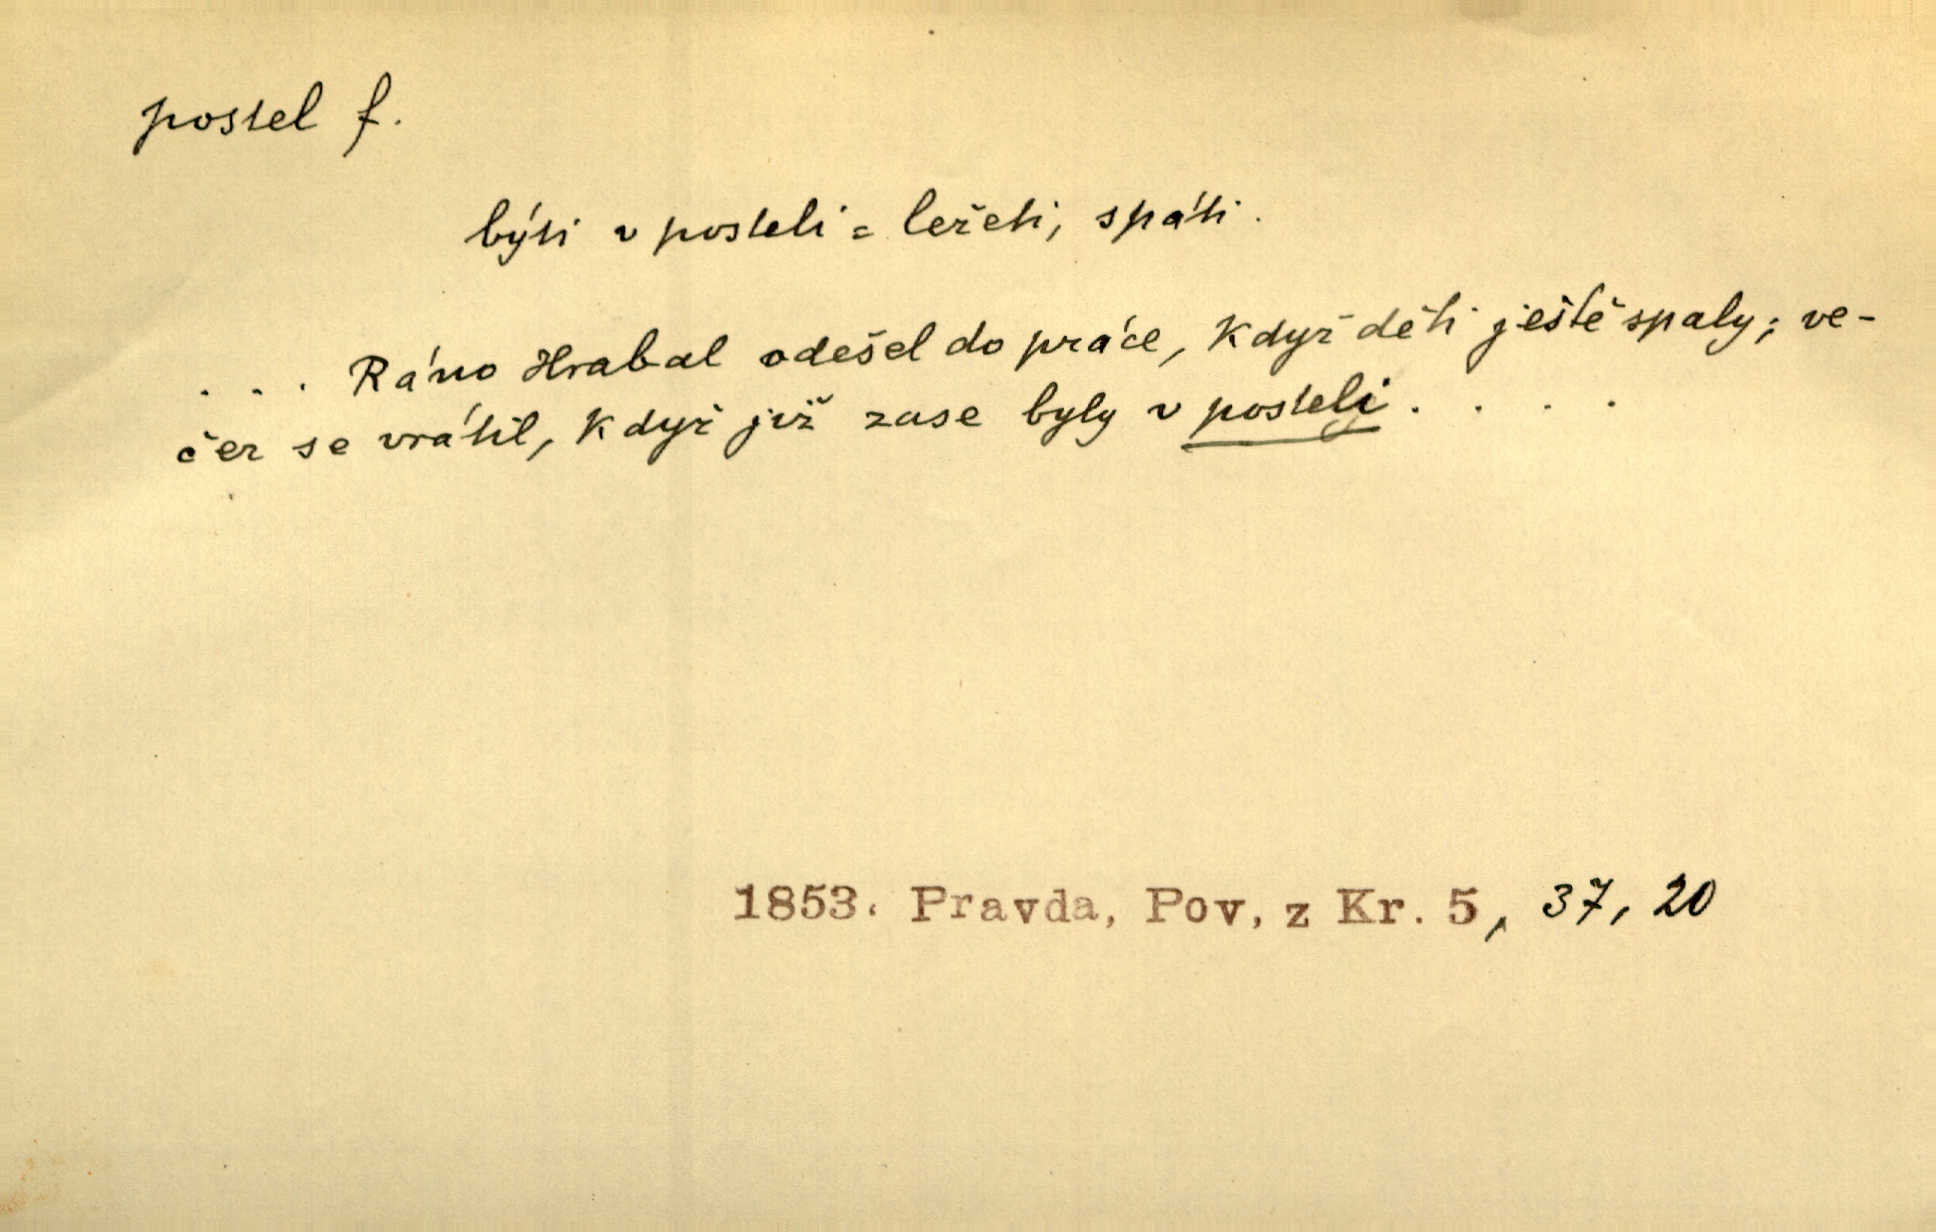 postel f.
býti v posteli = ležeti, spáti.
. . . Ráno Hrabal odešel do práce, když děti ještě spaly; ve-
čer se vrátil, když již zase byly v posteli. . . .
1853. Pravda, Pov. z Kr. 5, 37, 20